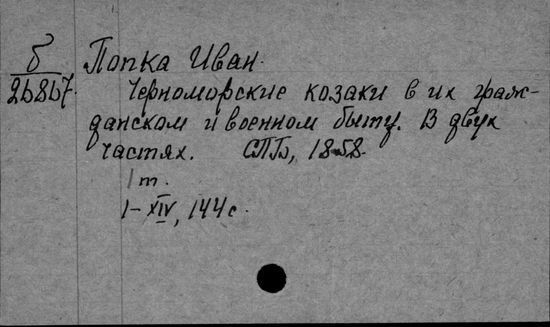 б Попка Иван.
26867. Черноморские козаки в их граж-
данском и военном быту. В двух
частях. СПБ, 1858.
1 т.
I-XIV, 144 с.